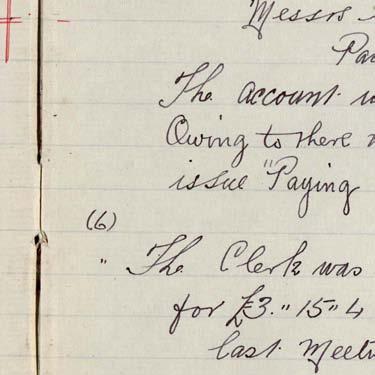 Messrs
The account
Owing to there
issue "Paying
(6)
" The Clerk was
for £3."15"4
last Meeti